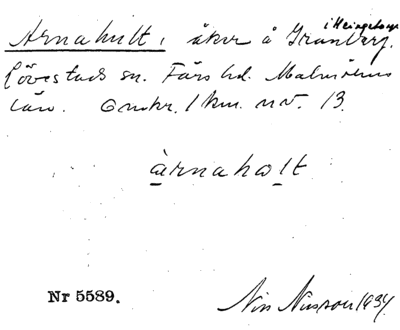 Arnahult, åker å Granberg. i Heingetorp
Lövestads sn. Färs hd. Malmöhus
län. Omkr. 1 km. nv. 13.
àrnaholt
Nr 5589.
Nils Nilsson 1934.